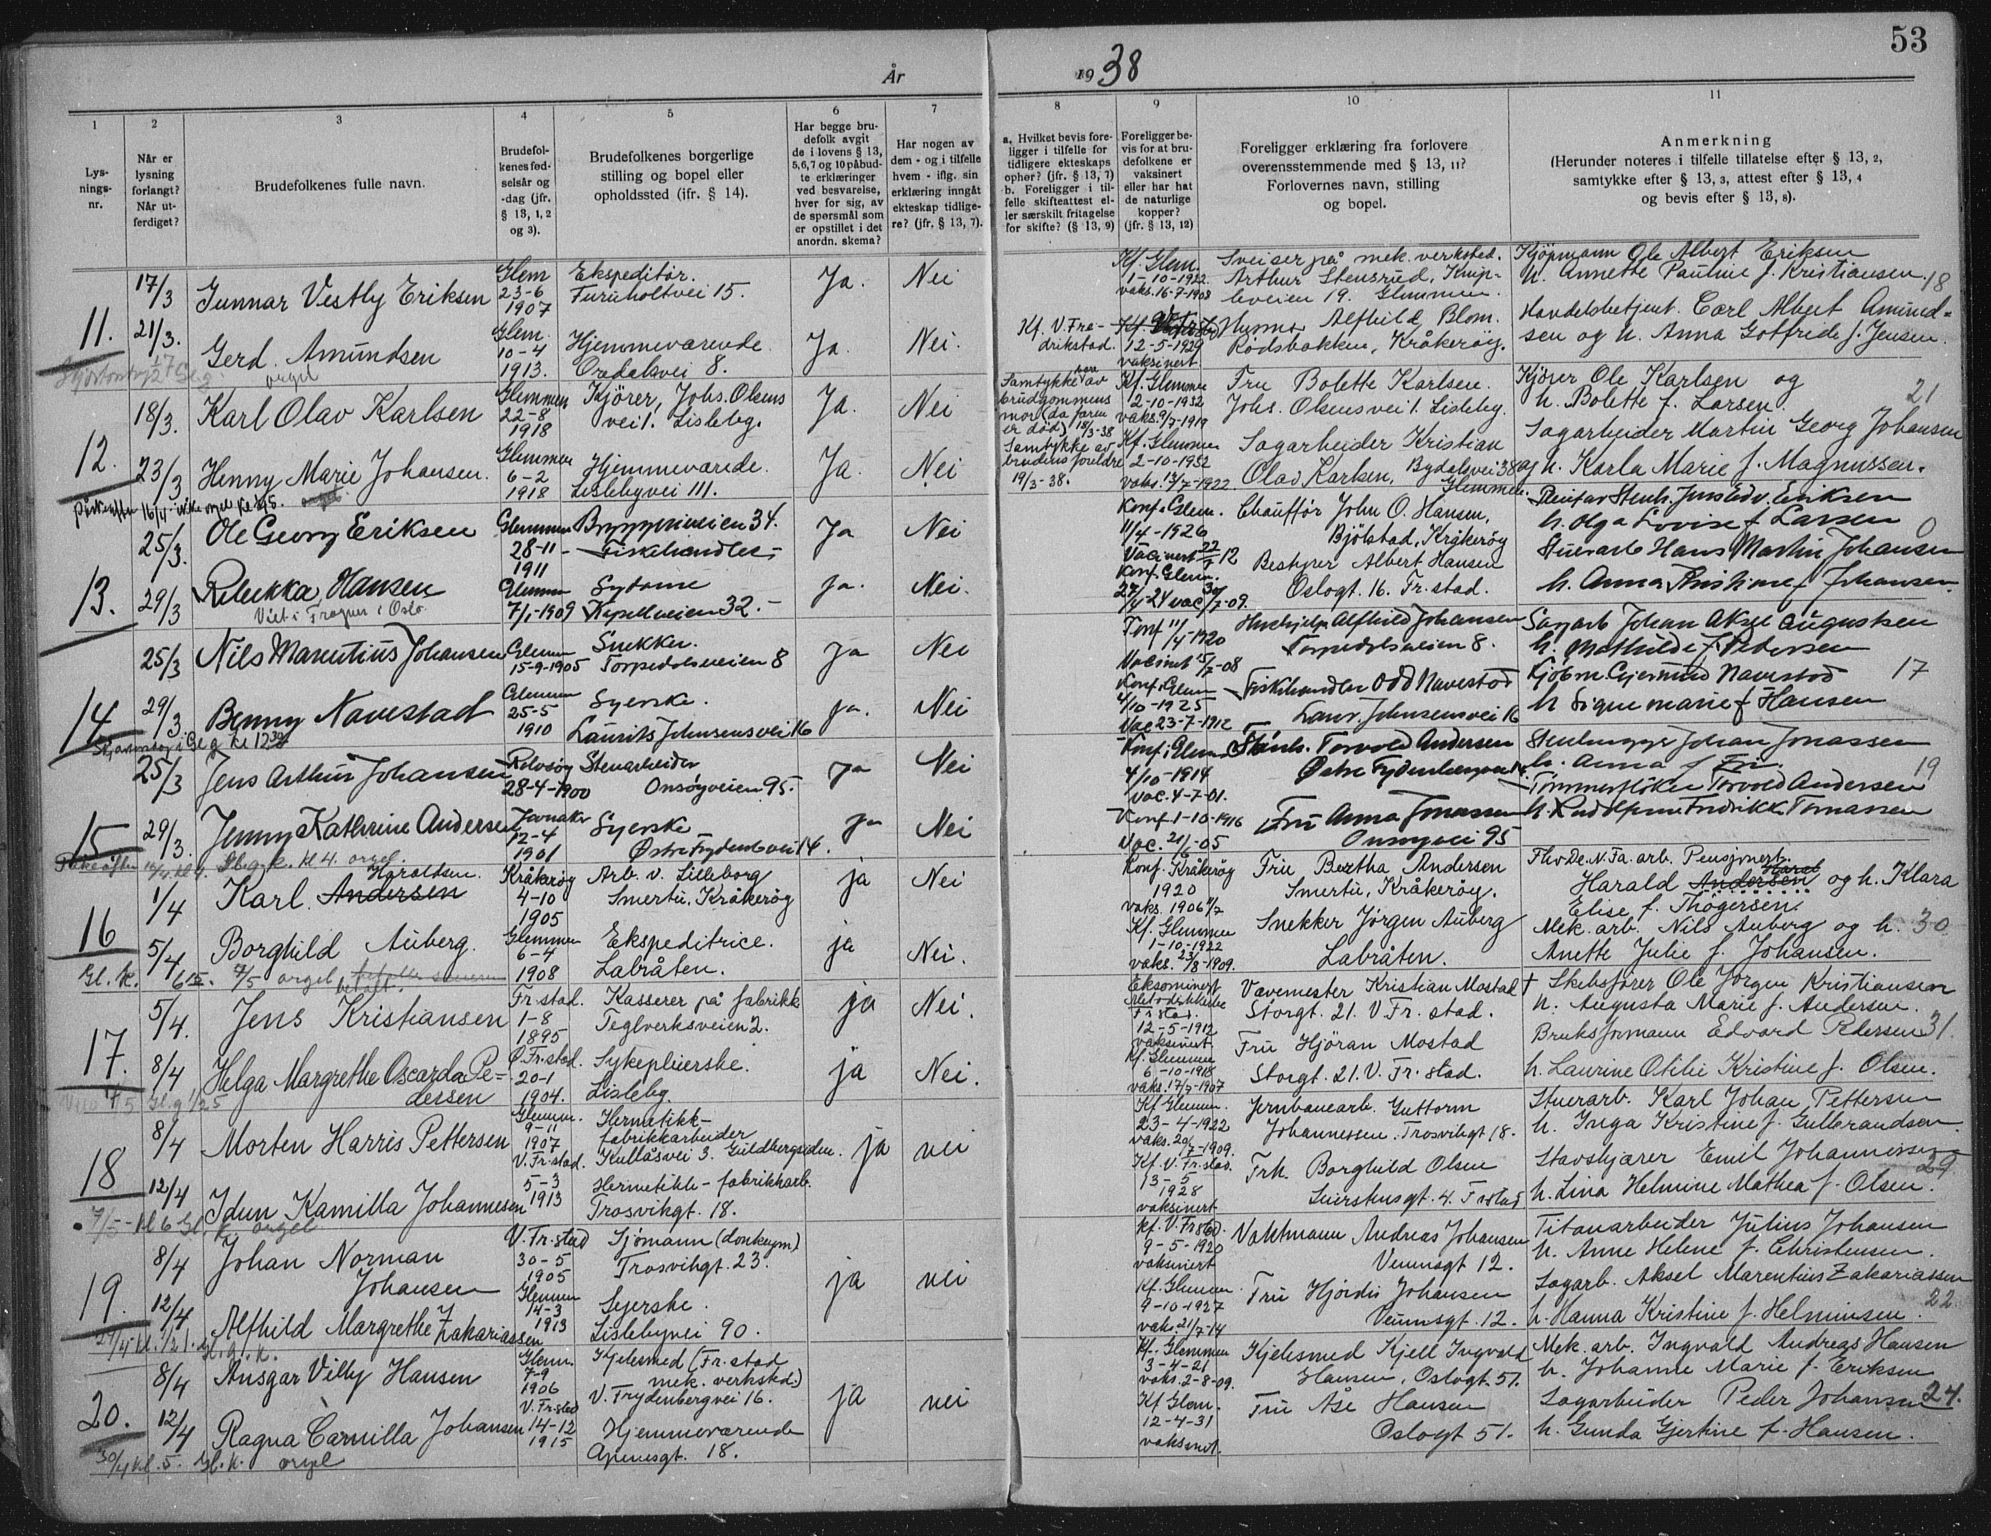 53
År 1938
1
2
3
4
5
6
7
8
9
10
11
Lys-
nings-
nr.
Når er
lysning
forlangt?
Når ut-
ferdiget?
Brudefolkenes fulle navn.
Brudefol-
kenes fød-
selsår og
-dag (jfr.
§ 13, 1, 2
og 3).
Brudefolkenes borgerlige
stilling og bopel eller
opholdssted (ifr. § 14).
Har begge bru-
defolk avgit
de i lovens § 13,
5,6,7 og 10 påbud-
te erklæringer
ved besvarelse,
hver for sig, av
de spørsmål som
er opstillet i det
anordn. skema?
Har nogen av
dem - og i tilfelle
hvem - iflg. sin
erklæring inngått
ekteskap tidlige-
re? (jfr. § 13, 7).
a. Hvilket bevis fore-
ligger i tilfelle for
tidligere ekteskaps
ophør? (jfr. § 13, 7)
b. Foreligger i til-
felle skifteattest el-
ler særskilt fritagelse
for skifte? (§ 13, 9)
Foreligger be-
vis for at bru-
defolkene er
vaksinert
eller har hat
de naturlige
kopper?
(jfr. § 13, 12)
Foreligger erklæring fra forlovere
overensstemmende med § 13, 11?
Forlovernes navn, stilling
og bopel.
Anmerkning
(Herunder noteres i tilfelle tillatelse efter § 13, 2,
samtykke efter § 13, 3, attest efter § 13, 4
og bevis efter § 13, 8).
11.
17/3
Gunnar Vestly Eriksen
Glem
23-6
1907
Ekspeditør.
Furuholtvei 15.
Ja.
Nei
Kf. Glem.
1-10-1922
vaks. 16-7-1908
Sveiser på mek. verksted.
Arthur Stensrud, Knip-
leveien 19. Glemmen.
Kjøpmann Ole Albert Eriksen
h. Annette Pauline f. Kristiansen.
18
21/3.
Gerd Amundsen
Glem.
10-4
1913.
Hjemmeværende
Oredalsvei 8.
Ja.
Nei.
Kf. V. Fre-
drikstad.
12-5-1929
vaksinert
Husmor Alfhild Blom.
Rødsbakken, Kråkerøy.
Handelsbetjent Carl Albert Amund-
sen og h. Anna Gotfrede f. Jensen.
orgel
12.
18/3.
Karl Olav Karlsen
Glemmen
22-8
1918
Kjører, Johs. Olsens
vei 1. Lisleby.
Ja.
Nei
Samtykke av
brudgommens
mor (da faren
er død) 18/3-38
Kf. Glemmen
2-10-1932
vaks. 9/7-1919
Fru Bolette Karlsen.
Johs. Olsens vei 1. Lisleby.
Kjører Ole Karlsen og
h. Bolette f. Larsen.
21
23/3
Henny Marie Johansen.
Glemmen
6-2
1918
Hjemmeværede.
Lislebyvei 111.
Ja.
Nei
Samtykke av
brudens foreldre
19/3-38.
Kf. Glemmen
2-10-1932
vaks. 13/7-1922
Sagarbeider Kristian
Olav Karlsen, Bydalsvei 38
Glemmen.
Sagarbeider Martin Georg Johansen
og h. Karla Marie f. Magnussen.
Påskeaften 16/4 - ikke orgel kl 5. orgel.
13.
25/3.
Ole Georg Eriksen
Glemmen
28-11-
1911
Bryggeriveien 34.
Fiskehandler.-
Ja
Nei
Konf. Glem.
11/4-1926
Chauffør John O. Hansen,
Bjølstad, Kråkerøy
h. Olga Lovise f Larsen
0
29/3
Rebekka Hansen
Viet i Frogner i Oslo
Glemmen
7/1-1909
Sydame
Kapellveien 32.-
ja.
Nei.
Konf. Glem.
Bestyrer Albert Hansen
Oslogt. 16. Fr.stad.
Stuerarb Hans Martin Johansen
h. Anna Kristine f Johansen.
14
25/3
Nils Marentius Johansen
Glemm
15-9-1905
Snekker.
Torpedalsveien 8
ja
Nei
Konf 11/4-1920
Vacinert 15/7-08
Hushjelp Alfhild Johansen
Torpedalsveien 8.
Sagarb Johan Aksel Augustsen
h. Mathilde f. Pedersen
29/3.
Benny Navestad
Glemmen
25-5
1910
Syerske.
Laurits Johnsensvei 16
ja.
Nei
Konf. i Glem
4/10-1925
Vac 23-7-1912
Fiskehandler Odd Navestad
Laur. Johnsensvei 16
Kjøbm. Gjermund Navestad
h Signe Marie f Hansen
17
15
25/3
Jens Arthur Johansen
Rolvsøy
28-4-1900
Stenarbeider
Onsøyveien 95.
ja
Nei
Konf. i Glem
4/10-1914
Vac. 4-7-01.
Stenh. Torvald Andersen
Stenhugger Johan Jonassen
h. Anna f
19
29/3.
Jenny Kathrine Andersen
12-4
1901
Syerske
Østre Frydenb.vei 14.
ja
Nei
Konf 1-10-1916
Vac. 21/6-05
Fru Anna Jonassen
Onsøyvei 95
Tømmerfløter Torvald Andersen
h. Rudolfine Fredrikke Tomassen
kl 4. orgel.
16
1/4
Karl Andersen
Haraldsen.
Kråkerøy
4-10
1905
Arb. v. Lilleborg
Smertu, Kråkerøy
ja
Nei
Konf. Kråkerøy
1920
vaks. 1906
Fru Bertha Andersen
Smertu, Kråkerøy.
Fhv. De. N. Fa. arb. Pensjonert.
Harald Andersen og h. Klara
Elise f. Thøgersen.
5/4
Borghild Auberg.
Glemmen
6-4
1908
Ekspeditrice.
Labråten.
ja
Nei.
Kf. Glemmen
1-10-1922
vaks. 23/8-1909.
Snekker Jørgen Auberg
Labråten.
Mek. arb. Nils Auberg og h.
Anette Julie f. Johansen.
30
Gl. k. 7/5 orgel betalt.
17.
5/4.
Jens Kristiansen
Fr.stad.
1-8
1895
Kasserer på fabrikk
Teglverksveien 2.
ja
Nei.
Eksaminert
Metodistkirke
Fr. stad.
12-5-1912
vaksinert.
Vævemester Kristian Mostad
Storgt. 21. V. Fr. stad.
† Skibsfører Ole Jørgen Kristiansen
h. Augusta Marie f. Andersen.
31.
8/4
Helga Margrethe Oscarda Pe=
dersen
Ø. Fr. stad.
20-1
1904.
Sykepleierske.
Lisleby.
ja
Nei.
Kf. Glemmen
6-10-1918
vaks. 17/7-1907
Fru Hjøran Mostad
Storgt. 21. V. Fr. stad.
Bruksformann Edvard Pedersen
h. Laurine Otilie Kristine f. Olsen.
18
8/4
Morten Harris Pettersen
Glemm.
9-11
1907
Hermetikk-
fabrikkarbeider
Kullåsvei 3. Guldbergsiden.
ja
nei
Kf Glemm.
23-4-1922
vaks. 20/7-1909.
Jernbanearb. Guttorm
Johannessen. Trosvikgt 18.
Stuerarb. Karl Johan Pettersen
h. Inga Kristine f. Gulbrandsen.
12/4
Idun Kamilla Johannesen
V. Fr. stad.
5-3
1913
Hermetikk-fabrikkarb.
Trosvikgt. 18.
Kf. V. Fr. stad.
13-5
1928
vaksinert
Frk. Borghild Olsen
Stavskjærer Emil Johannessen
h. Lina Helmine Mathea f. Olsen.
29
7/5 - kl 6 Gl. k. orgel
19.
8/4
Johan Norman
Johansen
V. Fr. stad
30-5
1905
Sjømann (donkeym)
Trosvikgt. 23.
ja
nei
Kf. V. Fr.sted.
9-5-1920
vaksinert
Vaktmann Andreas Johansen
Veumsgt 12.
Titanarbeider Julius Johansen
h. Anne Helene f. Christensen.
12/4
Alfhild Margrethe Zakariassen
Glemmen
14-3
1913
Syerske.
Lislebyvei 90.
Kf. Glemmen.
9-10-1927
vaks. 21/7-14
Fru Hjørdis Johansen
Veumsgt. 12.
Sagarb. Aksel Marentius Zakariassen
h. Hanna Kristine f. Helminsen.
22
Gl. k.
20.
8/4
Ansgar Villy Hansen
Glem.
7-9
1906
Kjelesmed (Fr. stad
mek. verksted.)
V. Frydenbergvei 16.
ja
nei
Kf. Glemmen
3-4-21
vaks. 2-8-09.
Kjelesmed Kjell Ingvald
Hansen, Oslogt. 51.
Mek. arb. Ingvald Andreas Hansen
h. Johanne Marie f. Eriksen
12/4
Ragna Camilla Johansen
V. Fr. stad
14-12
1915
Hjemmeværende
Apenesgt. 18.
Kf Glem.
12-4-31
vaksinert.
Fru Åse Hansen
Oslogt 51.
Sagarbeider Peder Johansen
h. Gunda Gjertine f. Hansen.
24.
30/4 kl. 5. Gl. k. orgel